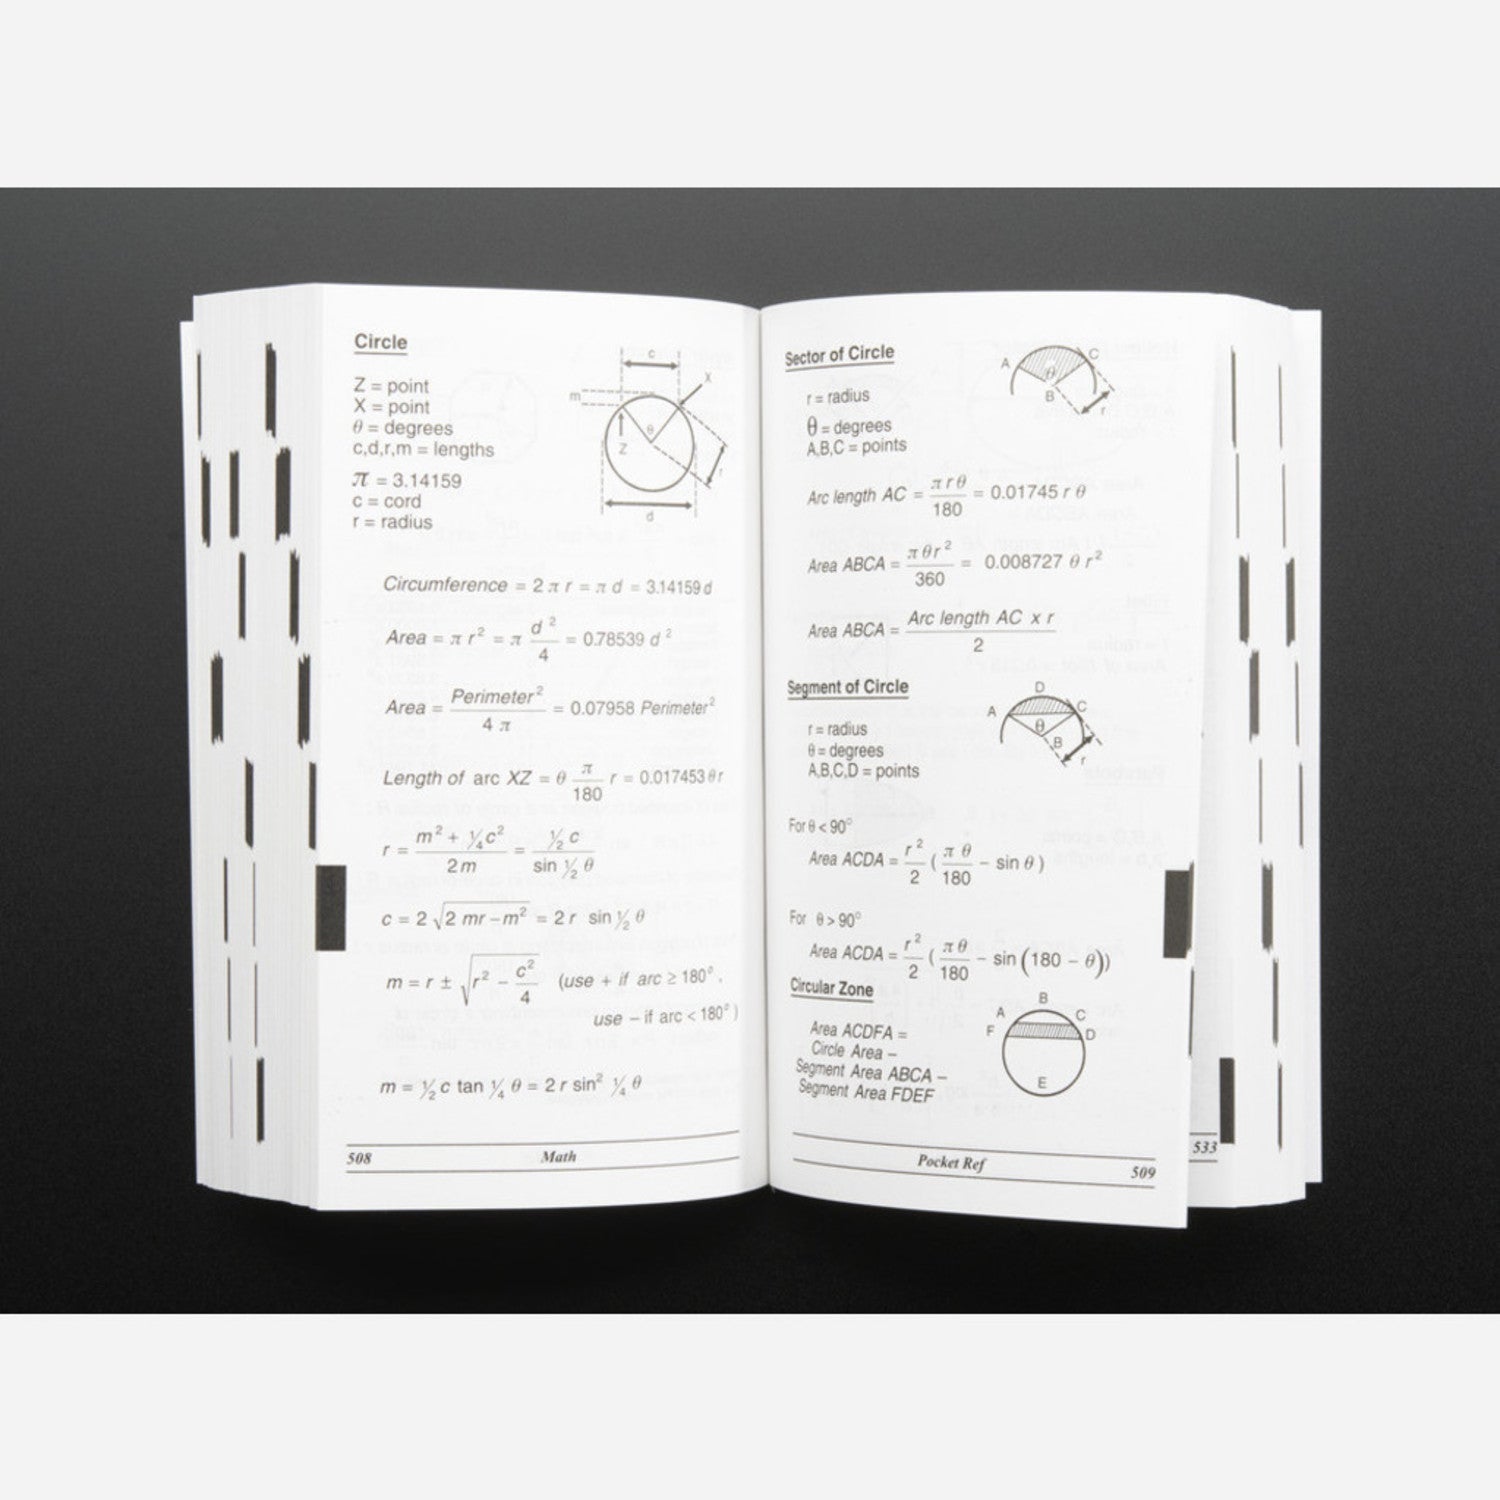 Circle
Z = point
X = point
θ = degrees
c,d,r,m = lengths
π = 3.14159
c = cord
r = radius
c
m
X
θ
Z
r
d
Circumference = 2 π r = π d = 3.14159 d
Area = π r² = π d²/4 = 0.78539 d²
Area = Perimeter²/4 π = 0.07958 Perimeter²
Length of arc XZ = θ π/180 r = 0.017453 θ r
r = m² + ¼c²/2m = ½ c/sin ½ θ
c = 2 √2 mr – m² = 2 r sin ½ θ
m = r ± √r² – c²/4 (use + if arc ≥ 180°,
use – if arc < 180°)
m = ½ c tan ¼ θ = 2 r sin² ¼ θ
508 Math
Sector of Circle
r = radius
θ = degrees
A,B,C = points
A
C
θ
B
r
Arc length AC = π r θ/180 = 0.01745 r θ
Area ABCA = π θ r²/360 = 0.008727 θ r²
Area ABCA = Arc length AC x r/2
Segment of Circle
r = radius
θ = degrees
A,B,C,D = points
D
A
C
θ
B
r
For θ < 90°
Area ACDA = r²/2 ( π θ/180 – sin θ )
For θ > 90°
Area ACDA = r²/2 ( π θ/180 – sin (180 – θ))
Circular Zone
Area ACDFA =
Circle Area –
Segment Area ABCA –
Segment Area FDEF
B
A
C
F
D
E
Pocket Ref 509
533